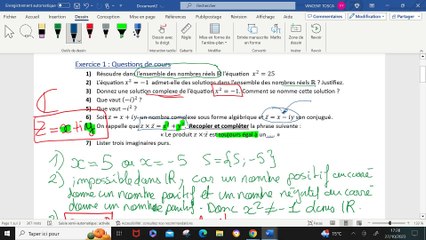 Document2
Rechercher
VINCENT TOSCA
Fichier Accueil Insertion Dessin Conception Mise en page Références Publipostage Révision Affichage Aide
Exercice 1 : Questions de cours
1) Résoudre dans l'ensemble des nombres réels ℝ l'équation x² = 25
2) L'équation x² = −1 admet-elle des solutions dans l'ensemble des nombres réels ℝ ? Justifiez.
3) Donnez une solution complexe de l'équation x² = −1. Comment se nomme cette solution ?
4) Que vaut (−i)² ?
5) Que vaut −i² ?
6) Soit z = x + iy un nombre complexe sous forme algébrique et z̄ = x − iy son conjugué.
On rappelle que z × z̄ = x² + y². Recopier et compléter la phrase suivante :
« Le produit z × z̄ est toujours égal à un ... »
7) Lister trois imaginaires purs.
ℂ
z = x + iy
1) x = 5 ou x = −5 S = {5 ; −5}
2) impossible dans ℝ, car un nombre positif au carré
donne un nombre positif et un nombre négatif au carré
donne un nombre positif. Donc x² ≠ −1 dans ℝ.
Taper ici pour rechercher
15°C
17:18
22/10/2023